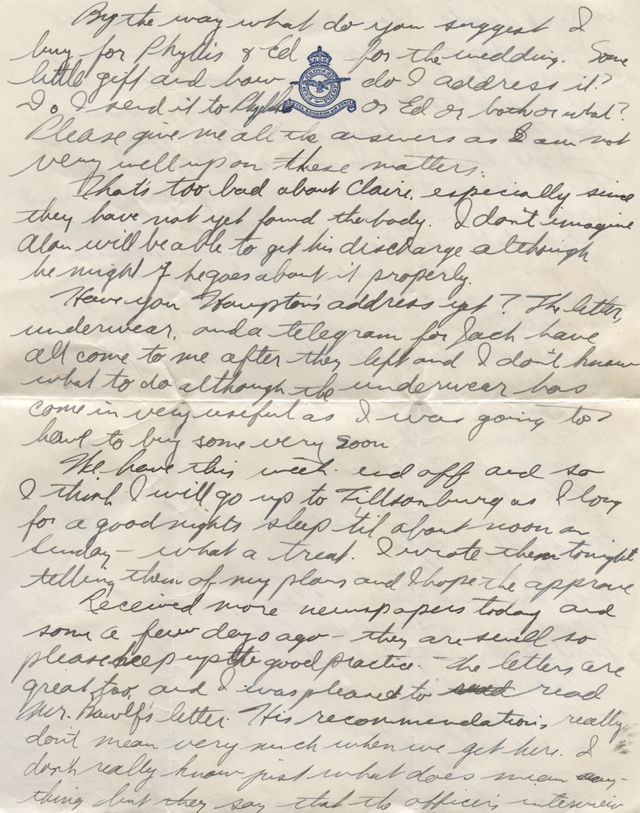 By the way what do you suggest I
buy for Phyllis & Ed for the wedding. Some
little gift and how do I address it?
Do I send it to Phyllis or Ed or both or what?
Please give me all the answers as I am not
very well up on these matters.
That's too bad about Claire, especially since
they have not yet found the body. I don't imagine
Alan will be able to get his discharge although
he might if he goes about it properly.
Have you Hampton's address yet? The letter,
underwear, and a telegram for Jack have
all come to me after they left and I don't know
what to do although the underwear has
come in very useful as I was going to
have to buy some very soon
We have this week end off and so
I think I will go up to Tillsonburg as I long
for a good nights sleep 'til about noon on
Sunday - what a treat. I wrote them tonight
telling them of my plans and I hope the approve
Received more newspapers today and
some a few days ago - they are swell so
please keep up the good practice. - The letters are
great too, and I was pleased to read
Mr. Bawlf's letter. His recommendations, really
don't mean very much when we get here. I
don't really know just what does mean any-
thing but they say that the officers interview